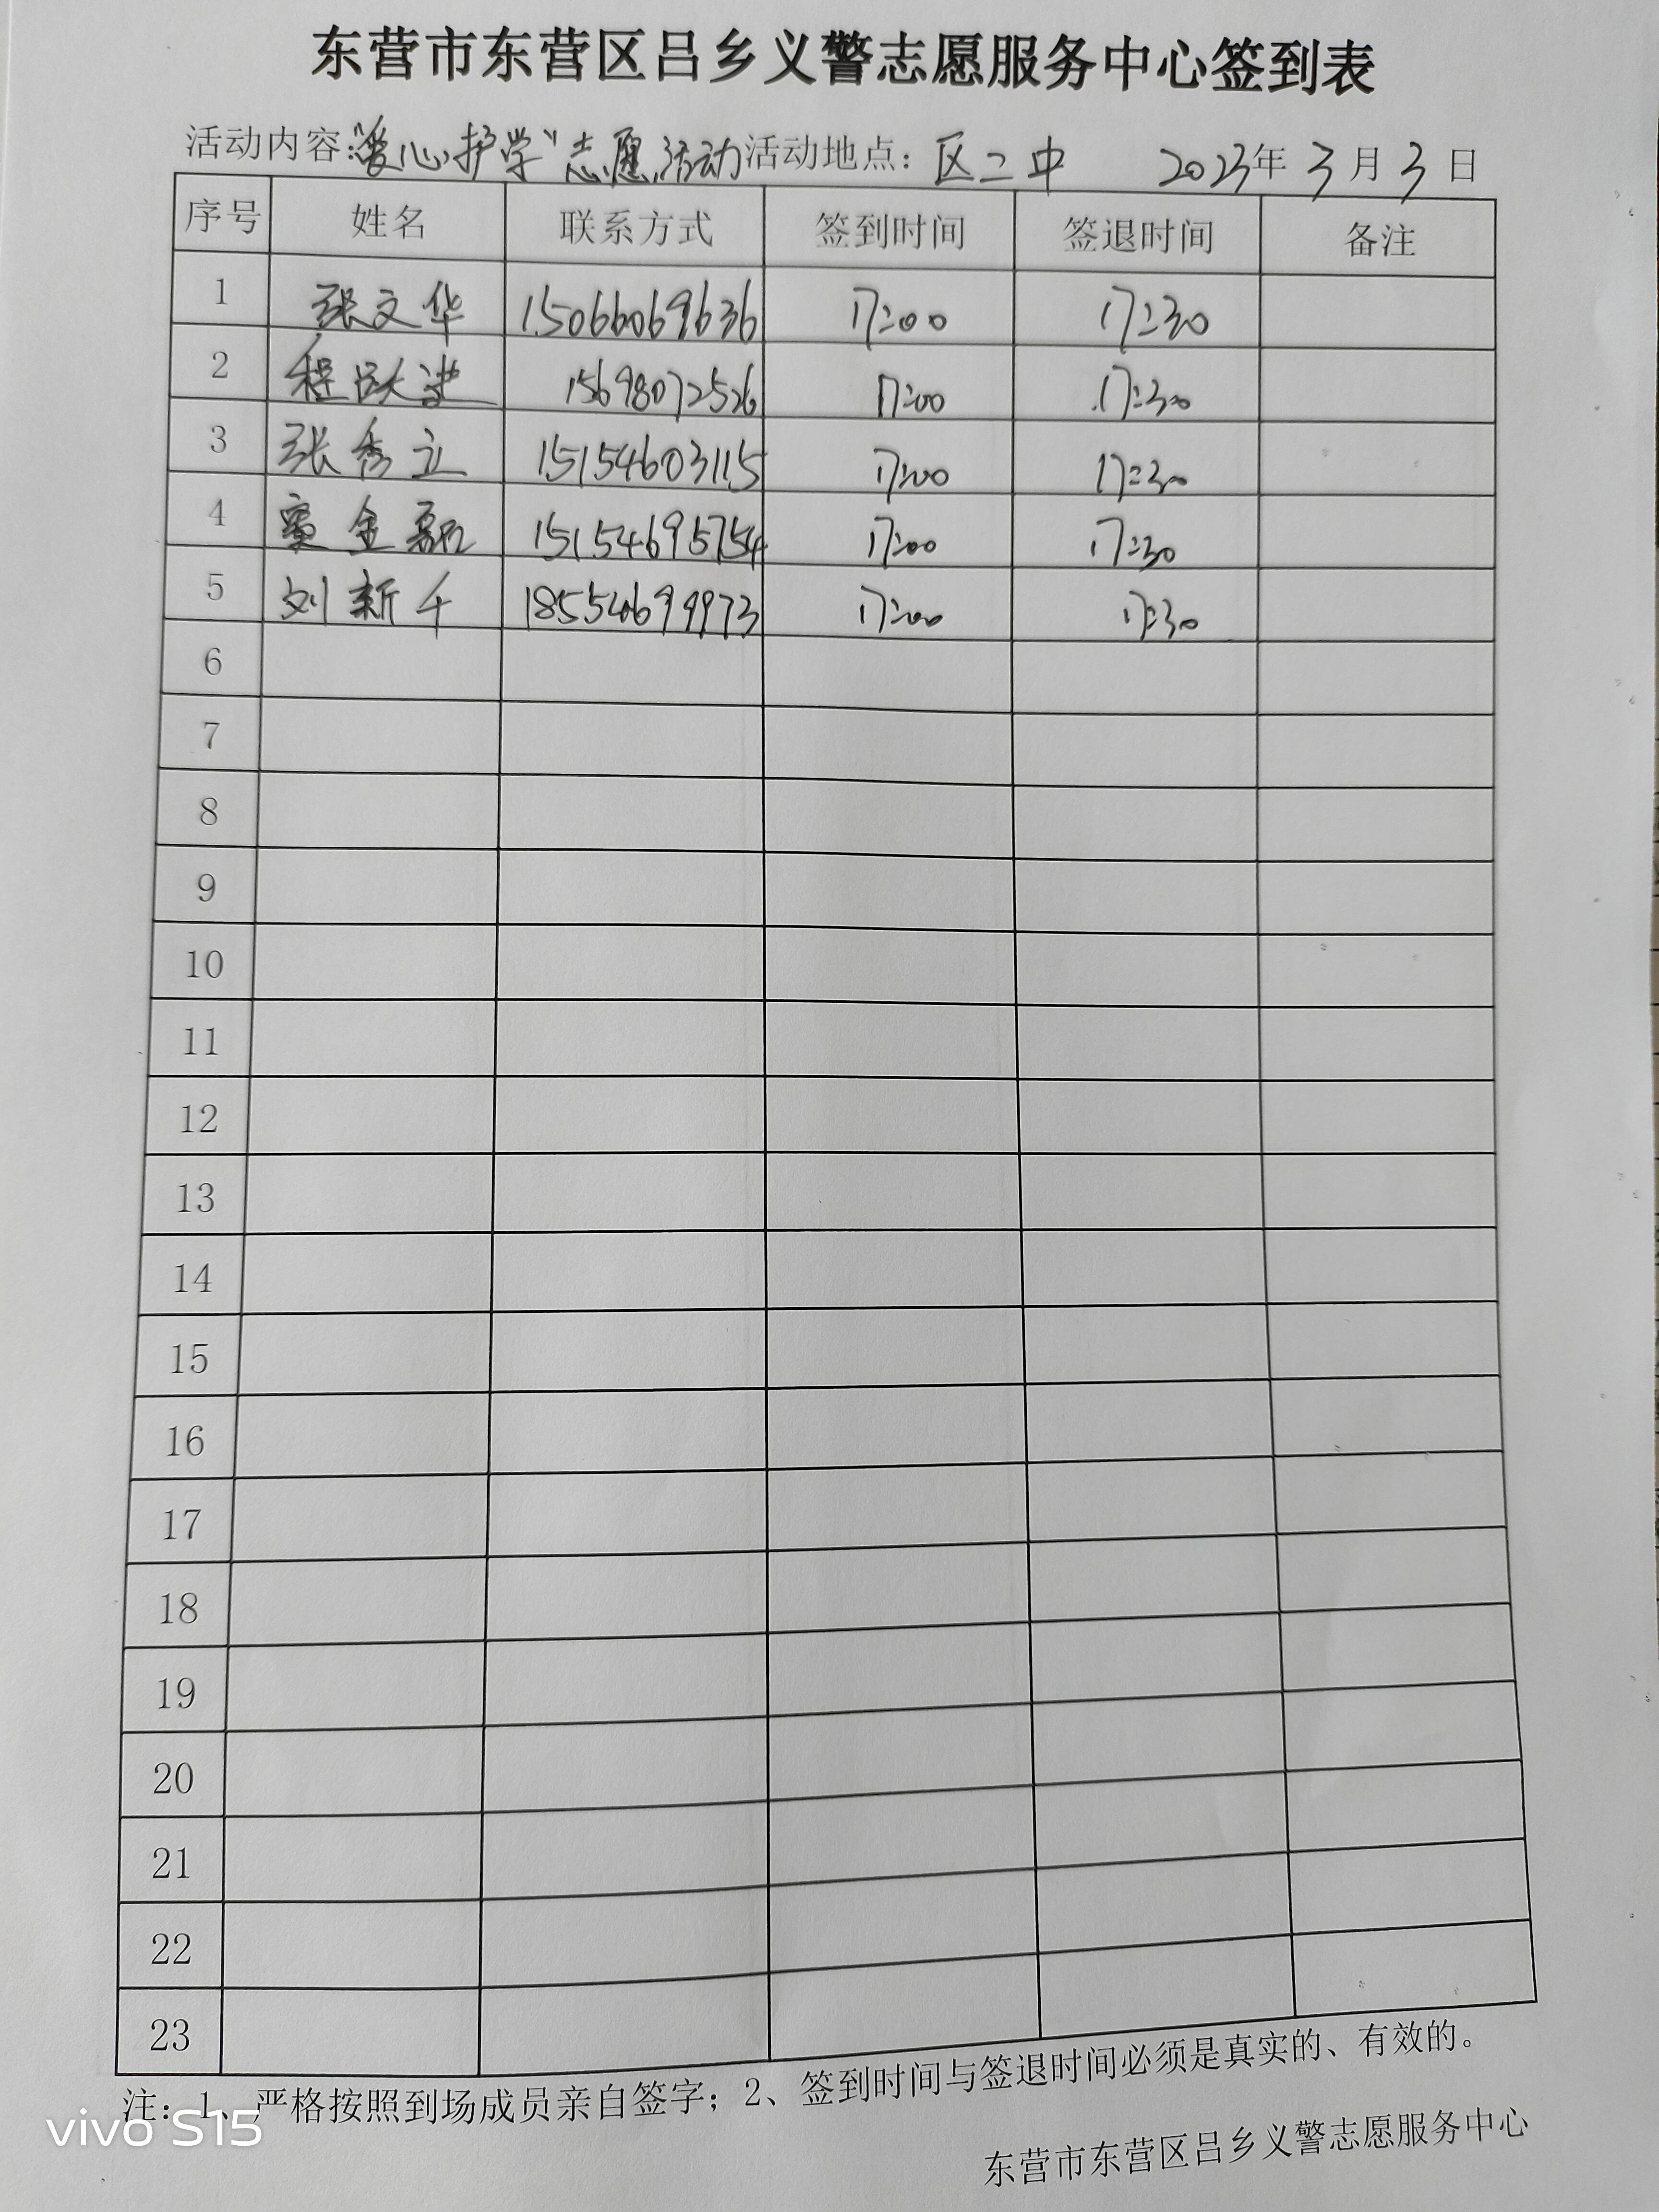 东营市东营区吕乡义警志愿服务中心签到表
活动内容:"爱心护学"志愿活动 活动地点: 区二中 2023年 3月 3日
序号 姓名 联系方式 签到时间 签退时间 备注
1 张文华 15066069636 17:00 17:30
2 程跃进 15698072526 17:00 17:30
3 张秀立 15154603115 17:00 17:30
4 金 15154695754 17:00 17:30
5 刘新千 18554699973 17:00 17:30
6
7
8
9
10
11
12
13
14
15
16
17
18
19
20
21
22
23
注：1、严格按照到场成员亲自签字；2、签到时间与签退时间必须是真实的、有效的。
东营市东营区吕乡义警志愿服务中心
vivo S15